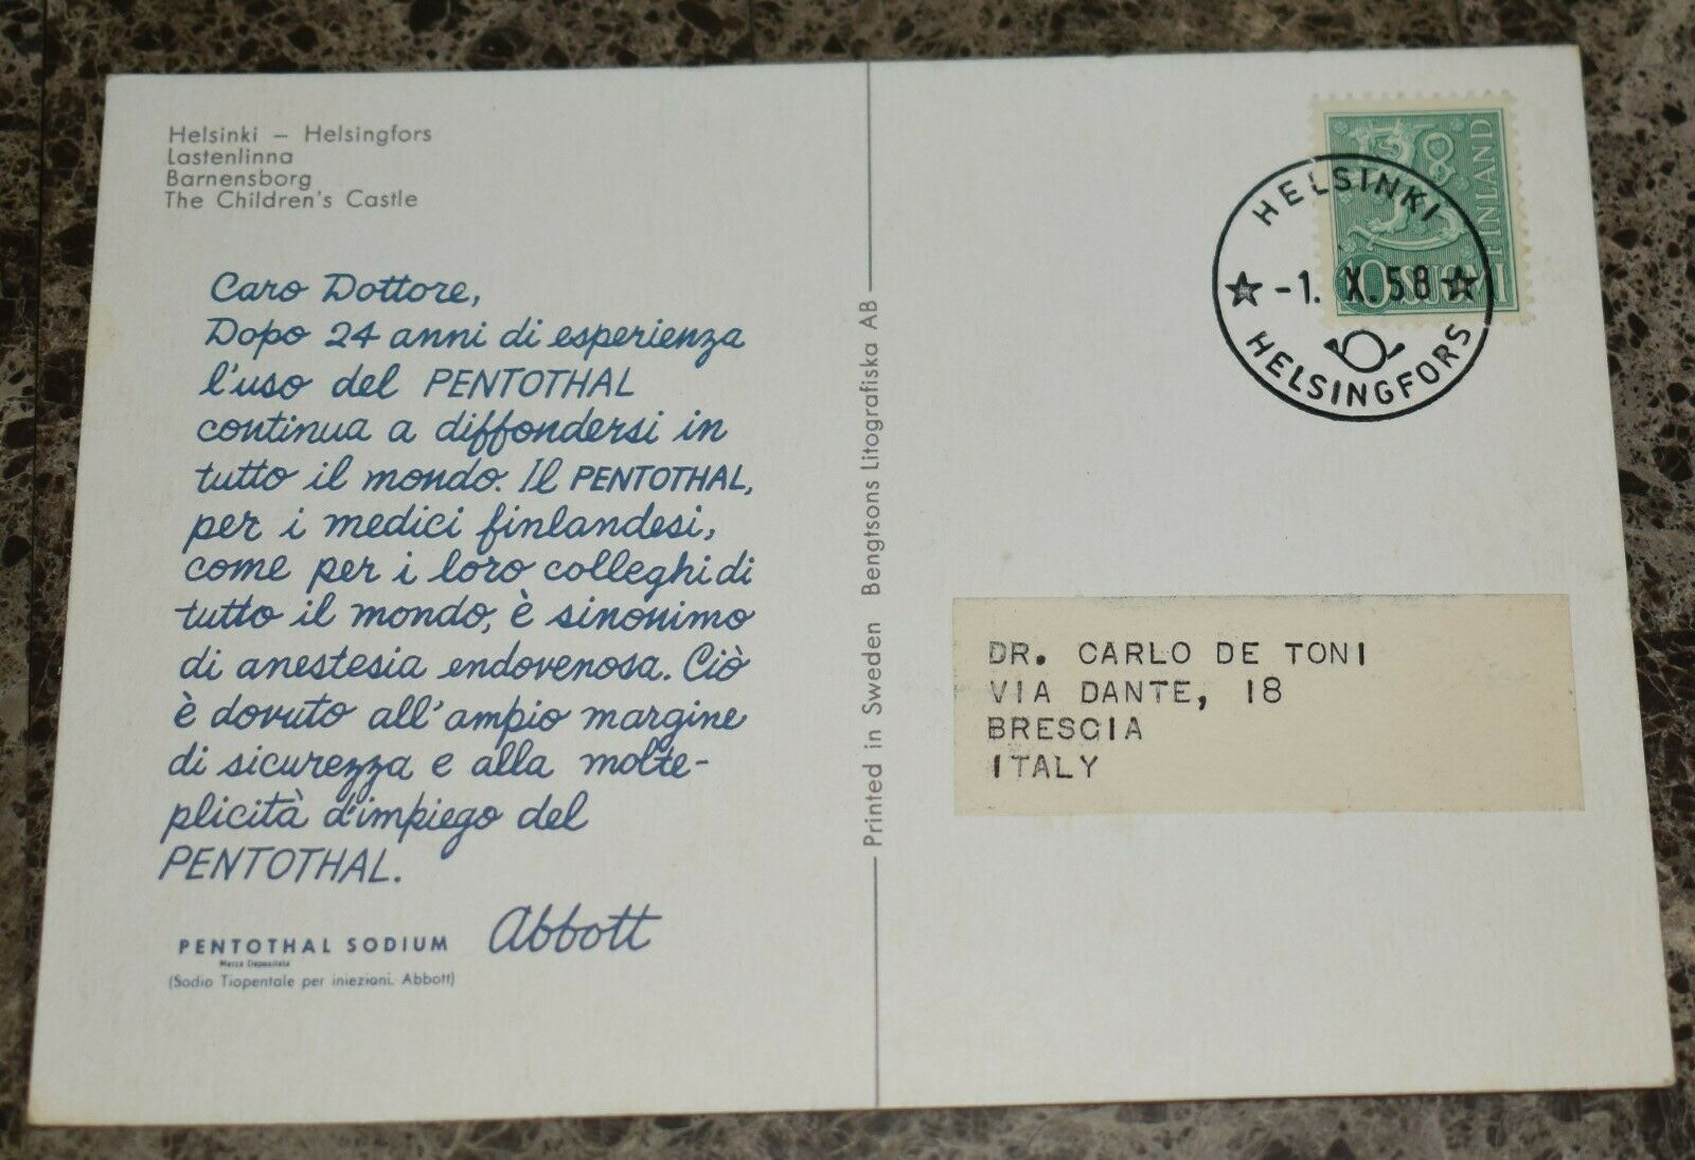 Helsinki – Helsingfors
Lastenlinna
Barnensborg
The Children's Castle
Caro Dottore,
Dopo 24 anni di esperienza
l'uso del PENTOTHAL
continua a diffondersi in
tutto il mondo. Il PENTOTHAL,
per i medici finlandesi,
come per i loro colleghi di
tutto il mondo, è sinonimo
di anestesia endovenosa. Ciò
è dovuto all'ampio margine
di sicurezza e alla molte-
plicità d'impiego del
PENTOTHAL.
Abbott
PENTOTHAL SODIUM
Marca Depositata
(Sodio Tiopentale per iniezioni. Abbott)
Printed in Sweden Bengtsons Litografiska AB
FINLAND
10 SUOMI
HELSINKI
-1. X. 58
HELSINGFORS
DR. CARLO DE TONI
VIA DANTE, 18
BRESCIA
ITALY